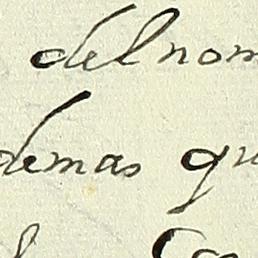 del nom
demas qu